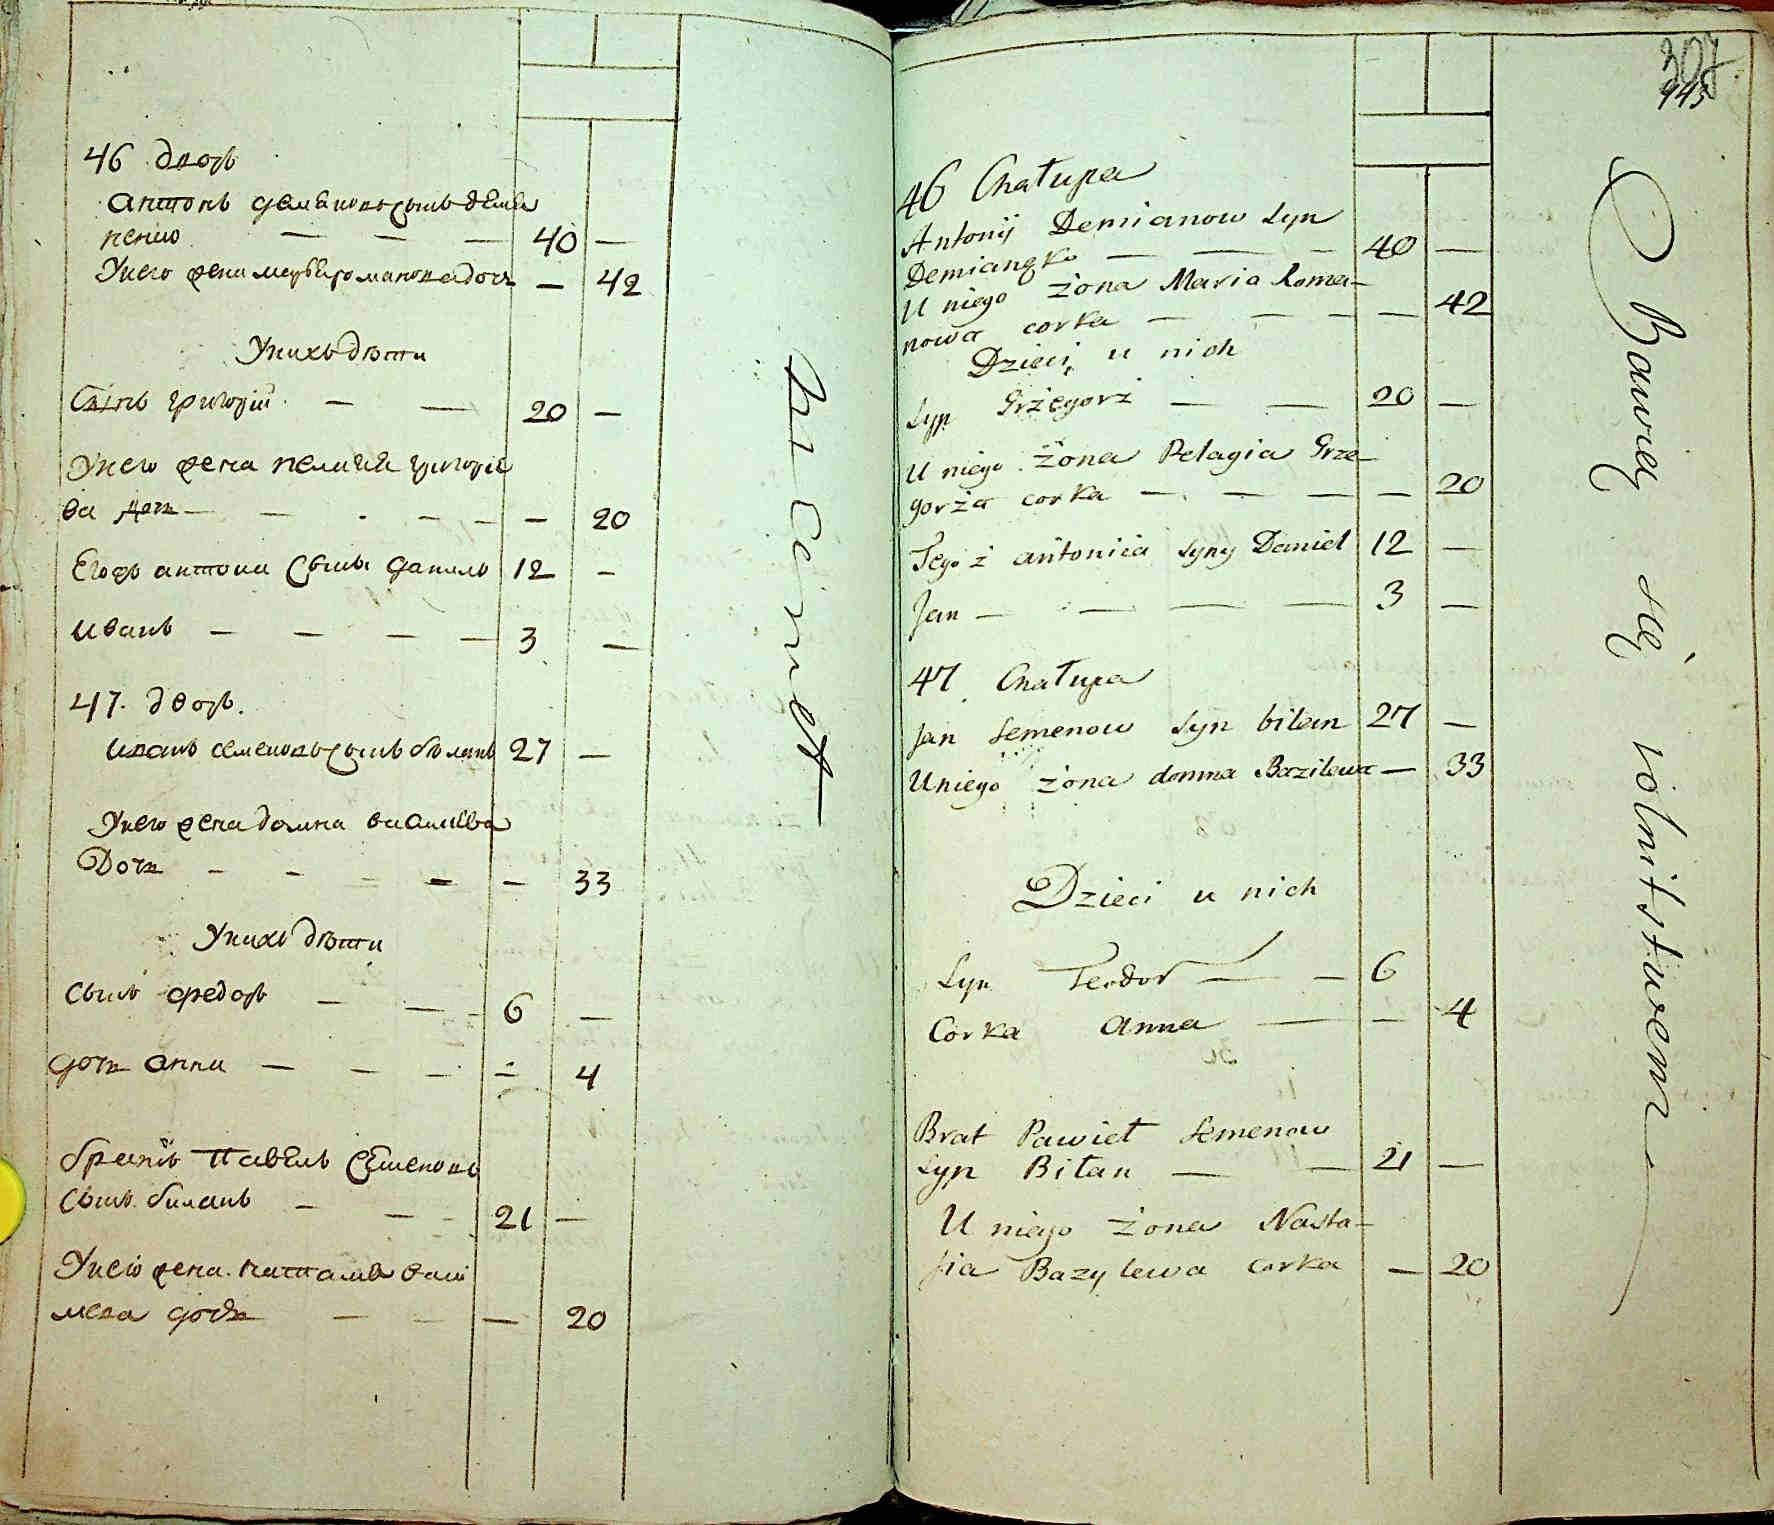 46 дворъ
Антонъ Демяновъ сынъ Демя
ненко — — — 40 —
У него жена Марья Романова дочь — 42
У нихъ дѣти
Сынъ Григорій — — 20 —
У него жена Пелагея Григорье
ва дочь — — — — — 20
Егожъ Антона сыны Данило 12 —
Иванъ — — — — 3 —
47. дворъ.
Иванъ Семеновъ сынъ Бѣланъ 27 —
У него жена Домна Василева
Дочь — — — — — 33
У нихъ дѣти
Сынъ Федоръ — — — 6 —
Дочь Анна — — — — 4
братъ Павелъ Семеновъ
Сынъ Биланъ — — — 21 —
У него жена Настася Васи
лева дочь — — — 20
307
46 Chałupa
Antonij Demianow Syn
Demianęko — — — 40 —
U niego żona Maria Roma-
nowa corka — — — — 42
Dzieci u nich
Syn Grzegorż — — 20 —
U niego żona Pelagia Grze-
gorża corka — — — — 20
Tego ż antonia syny Daniel 12 —
Jan — — — — 3 —
47 Chałupa
Jan Semenow Syn bilan 27 —
U niego żona domna Bazilewa — 33
Dzieci u nich
Syn Teodor — — 6
Corka anna — — 4
Brat Pawieł Semenow
Syn Biłan — — 21 —
U niego żona Nasta-
sia Bazylewa corka — 20
Bawię się rolnitstwem